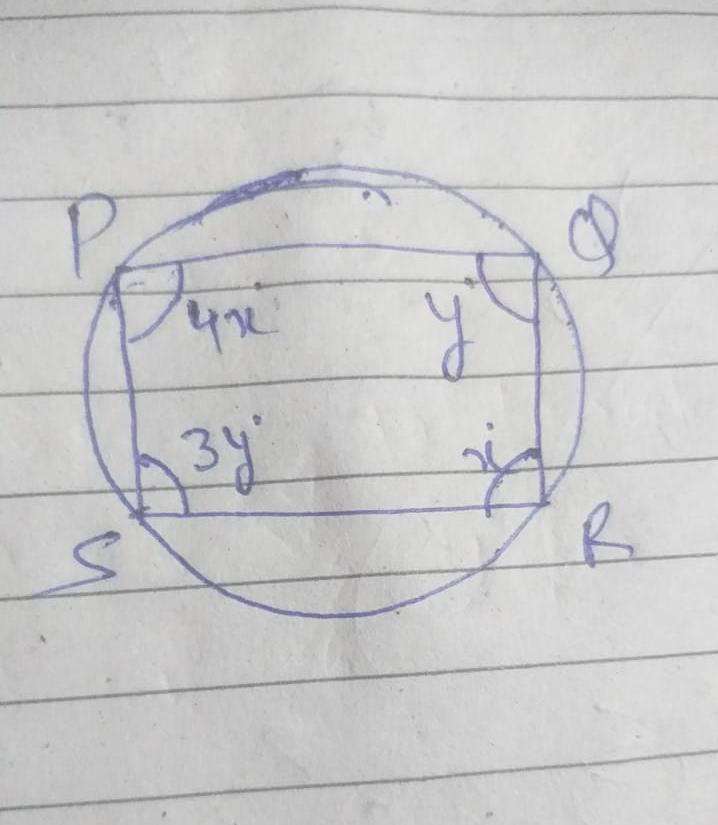 P Q
4x° y°
3y° x°
S R